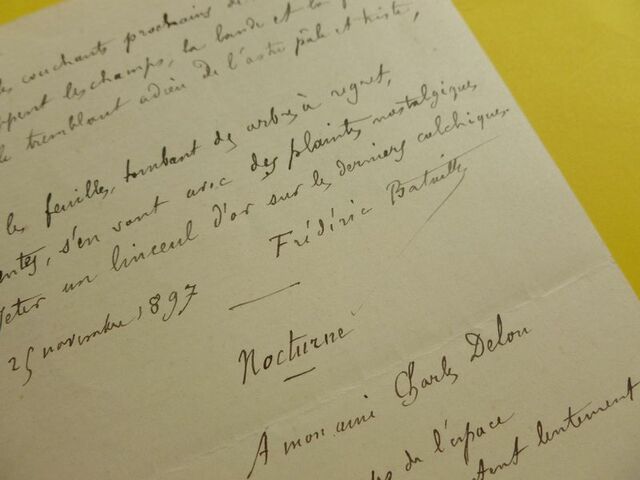 couchants prochains de
les champs, la lande et la
tremblant adieu de l'astre pâle et triste,
les feuilles, tombant des arbres à regret,
s'en vont avec des plaintes nostalgiques
un linceul d'or sur les derniers colchiques.
25 novembre 1897
Frédéric Bataille
Nocturne
A mon ami Charles Delon
de l'espace
lentement